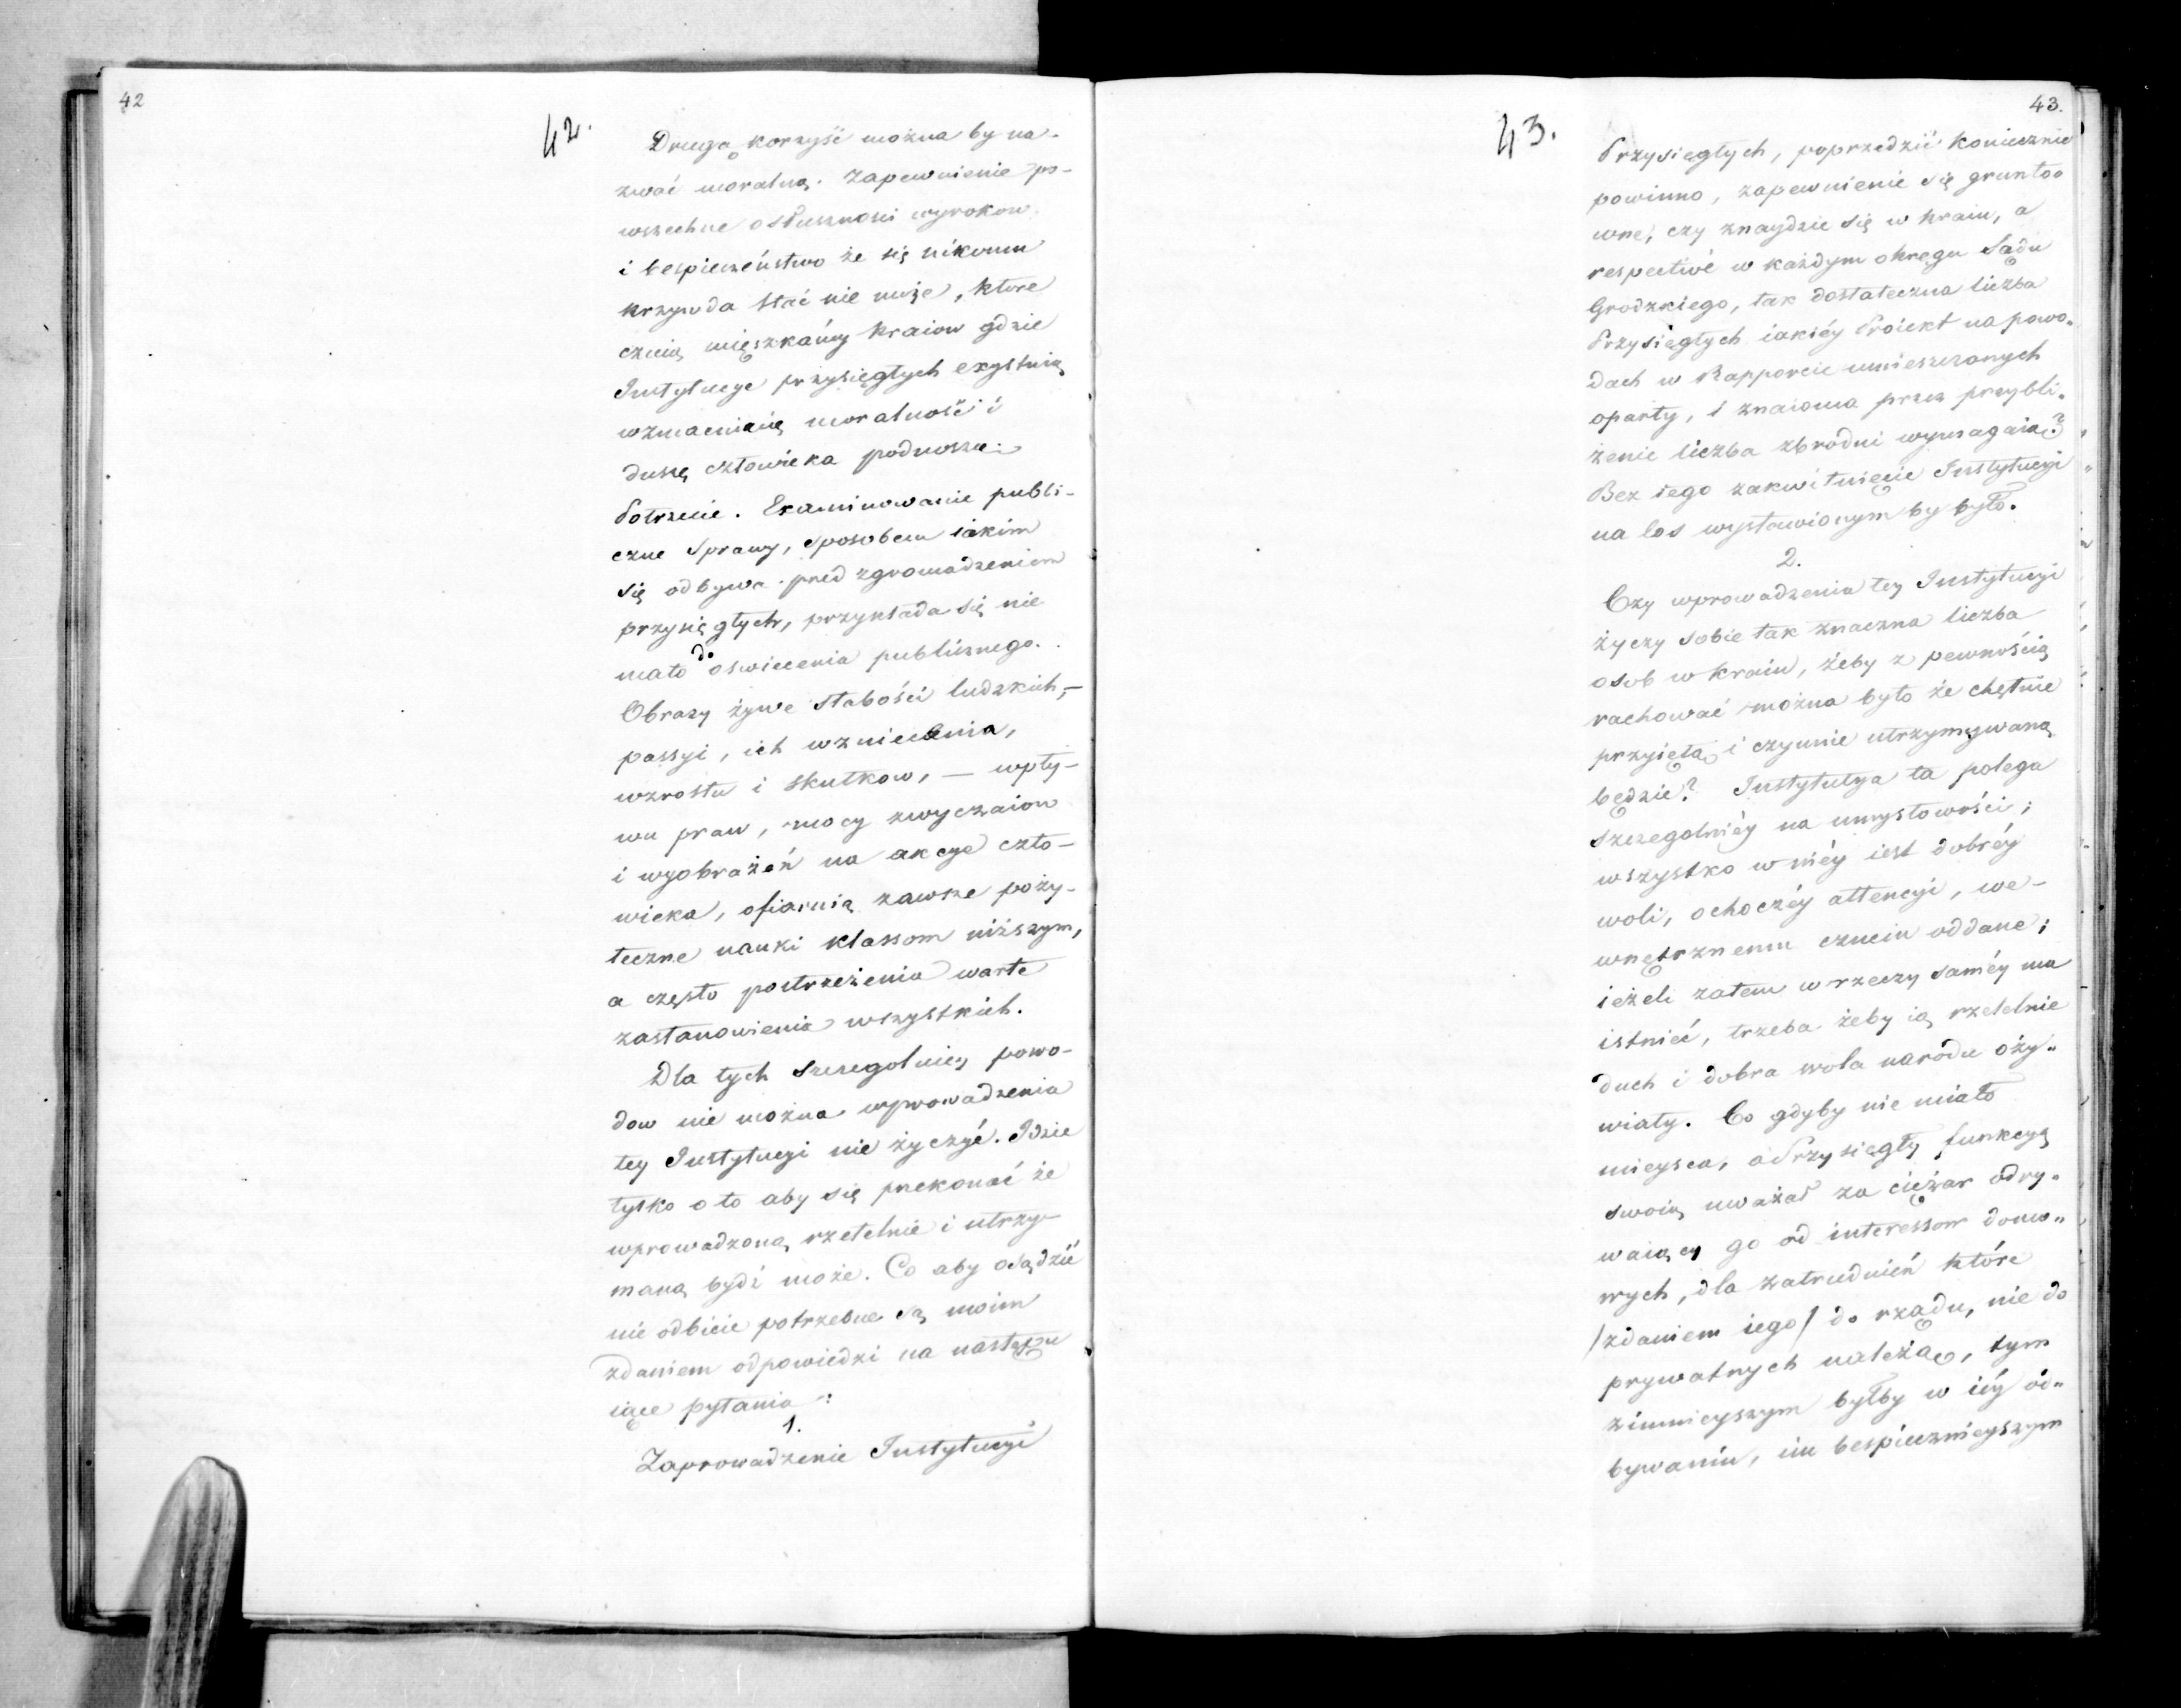 42
42.
Drugą korzyść można by na-
zwać moralną. Zapewnienie po-
wszechne o słuszności wyrokow
i bespieczeństwo że się nikomu
krzywda stać nie może, ktore
czuią mięszkańcy kraiow gdzie
Instytucye przysięgłych exystuią
wzmacniaią moralność i
duszę człowieka podnoszą.
Potrzecie. Examinowanie publi-
czne sprawy, sposobem iakim
się odbywa pred zgromadzeniem
przysięgłych, przykłada się nie
mało do oswiecenia publicznego.
Obrazy żywe słabości ludzkich,–
passyi, ich wzniecenia,
wzrostu i skutkow, – wpły-
wu praw, mocy zwyczaiow
i wyobrażeń na akcye czło-
wieka, ofiaruią zawsze poży-
teczne nauki klassom niższym,
a często postrzeżenia warte
zastanowienia wszystkich.
Dla tych szczegolniey powo-
dow nie można wprowadzenia
tey Instytucyi nie życzyć. Idzie
tylko o to aby się prekonać że
wprowadzoną rzetelnie i utrzy-
maną bydź może. Co aby osądzić
nie odbicie potrzebne są moim
zdaniem odpowiedzi na nastę̨pu
iące pytania:
1.
Zaprowadzenie Instytucyi
43.
43.
Przysięgłych, poprzedzić koniecznie
powinno, zapewnienie się grunto„
wne, czy znaydzie się w kraiu, a
respective w każdym okręgu Sądu
Grodzkiego, tak dostateczna liczba
Przysięgłych iakiéy Proiekt na powo„
dach w Rapporcie umieszczonych
oparty, i znaioma przez przybli„
żenie liczba zbrodni wymagaią?
Bez tego zakwitnięcie Instytucyi
na los wystawionym by było.
2.
Czy wprowadzenia tey Instytucyi
życzy sobie tak znaczna liczba
osob w kraiu, żeby z pewnością
rachować można było że chętnie
przyiętą i czynnie utrzymywaną
będzie? Instytucya ta polega
szczegolniéy na umysłowości;
wszystko w niéy iest dobréy
woli, ochoczéy attencyi, we-
wnętrznemu czuciu oddane;
ieżeli zatem w rzeczy saméy ma
istnieć, trzeba żeby ią rzetelnie
duch i dobra wola narodu oży„
wiały. Co gdyby nie miało
mieysca, a Przysięgły funkcyą
swoią uważał za cięźar odry„
waiący go od interessow domo„
wych, dla zatrudnień które
/zdaniem iego/ do rządu, nie do
prywatnych należą, tym
zimnieyszym byłby w iéy od„
bywaniu, im bespiecznieyszym